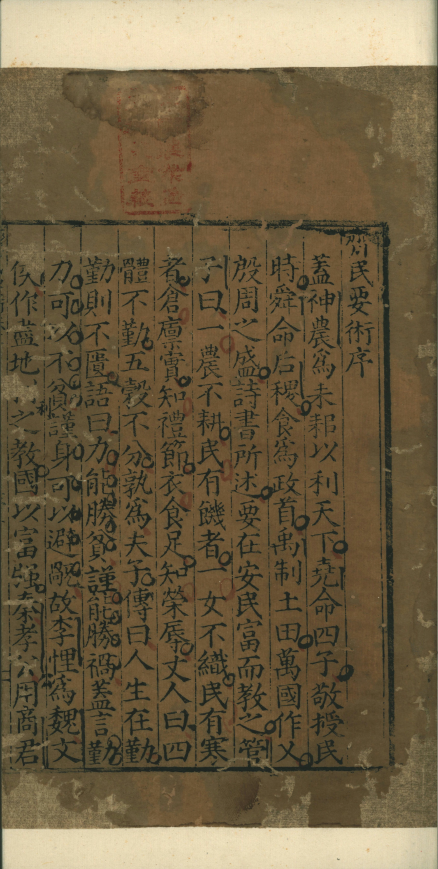 齊民要術序
蓋神農爲耒耜以利天下堯命四子敬授民
時舜命后稷食爲政首禹制土田萬國作乂
殷周之盛詩書所述要在安民富而教之管
子曰一農不耕民有饑者一女不織民有寒
者倉廩實知禮節衣食足知榮辱丈人曰四
體不勤五穀不分孰爲夫子傳曰人生在勤
勤則不匱語曰力能勝貧謹能勝禍蓋言勤
力可以不貧謹身可以避禍故李悝爲魏文
侯作盡地之教國以富强秦孝公用商君